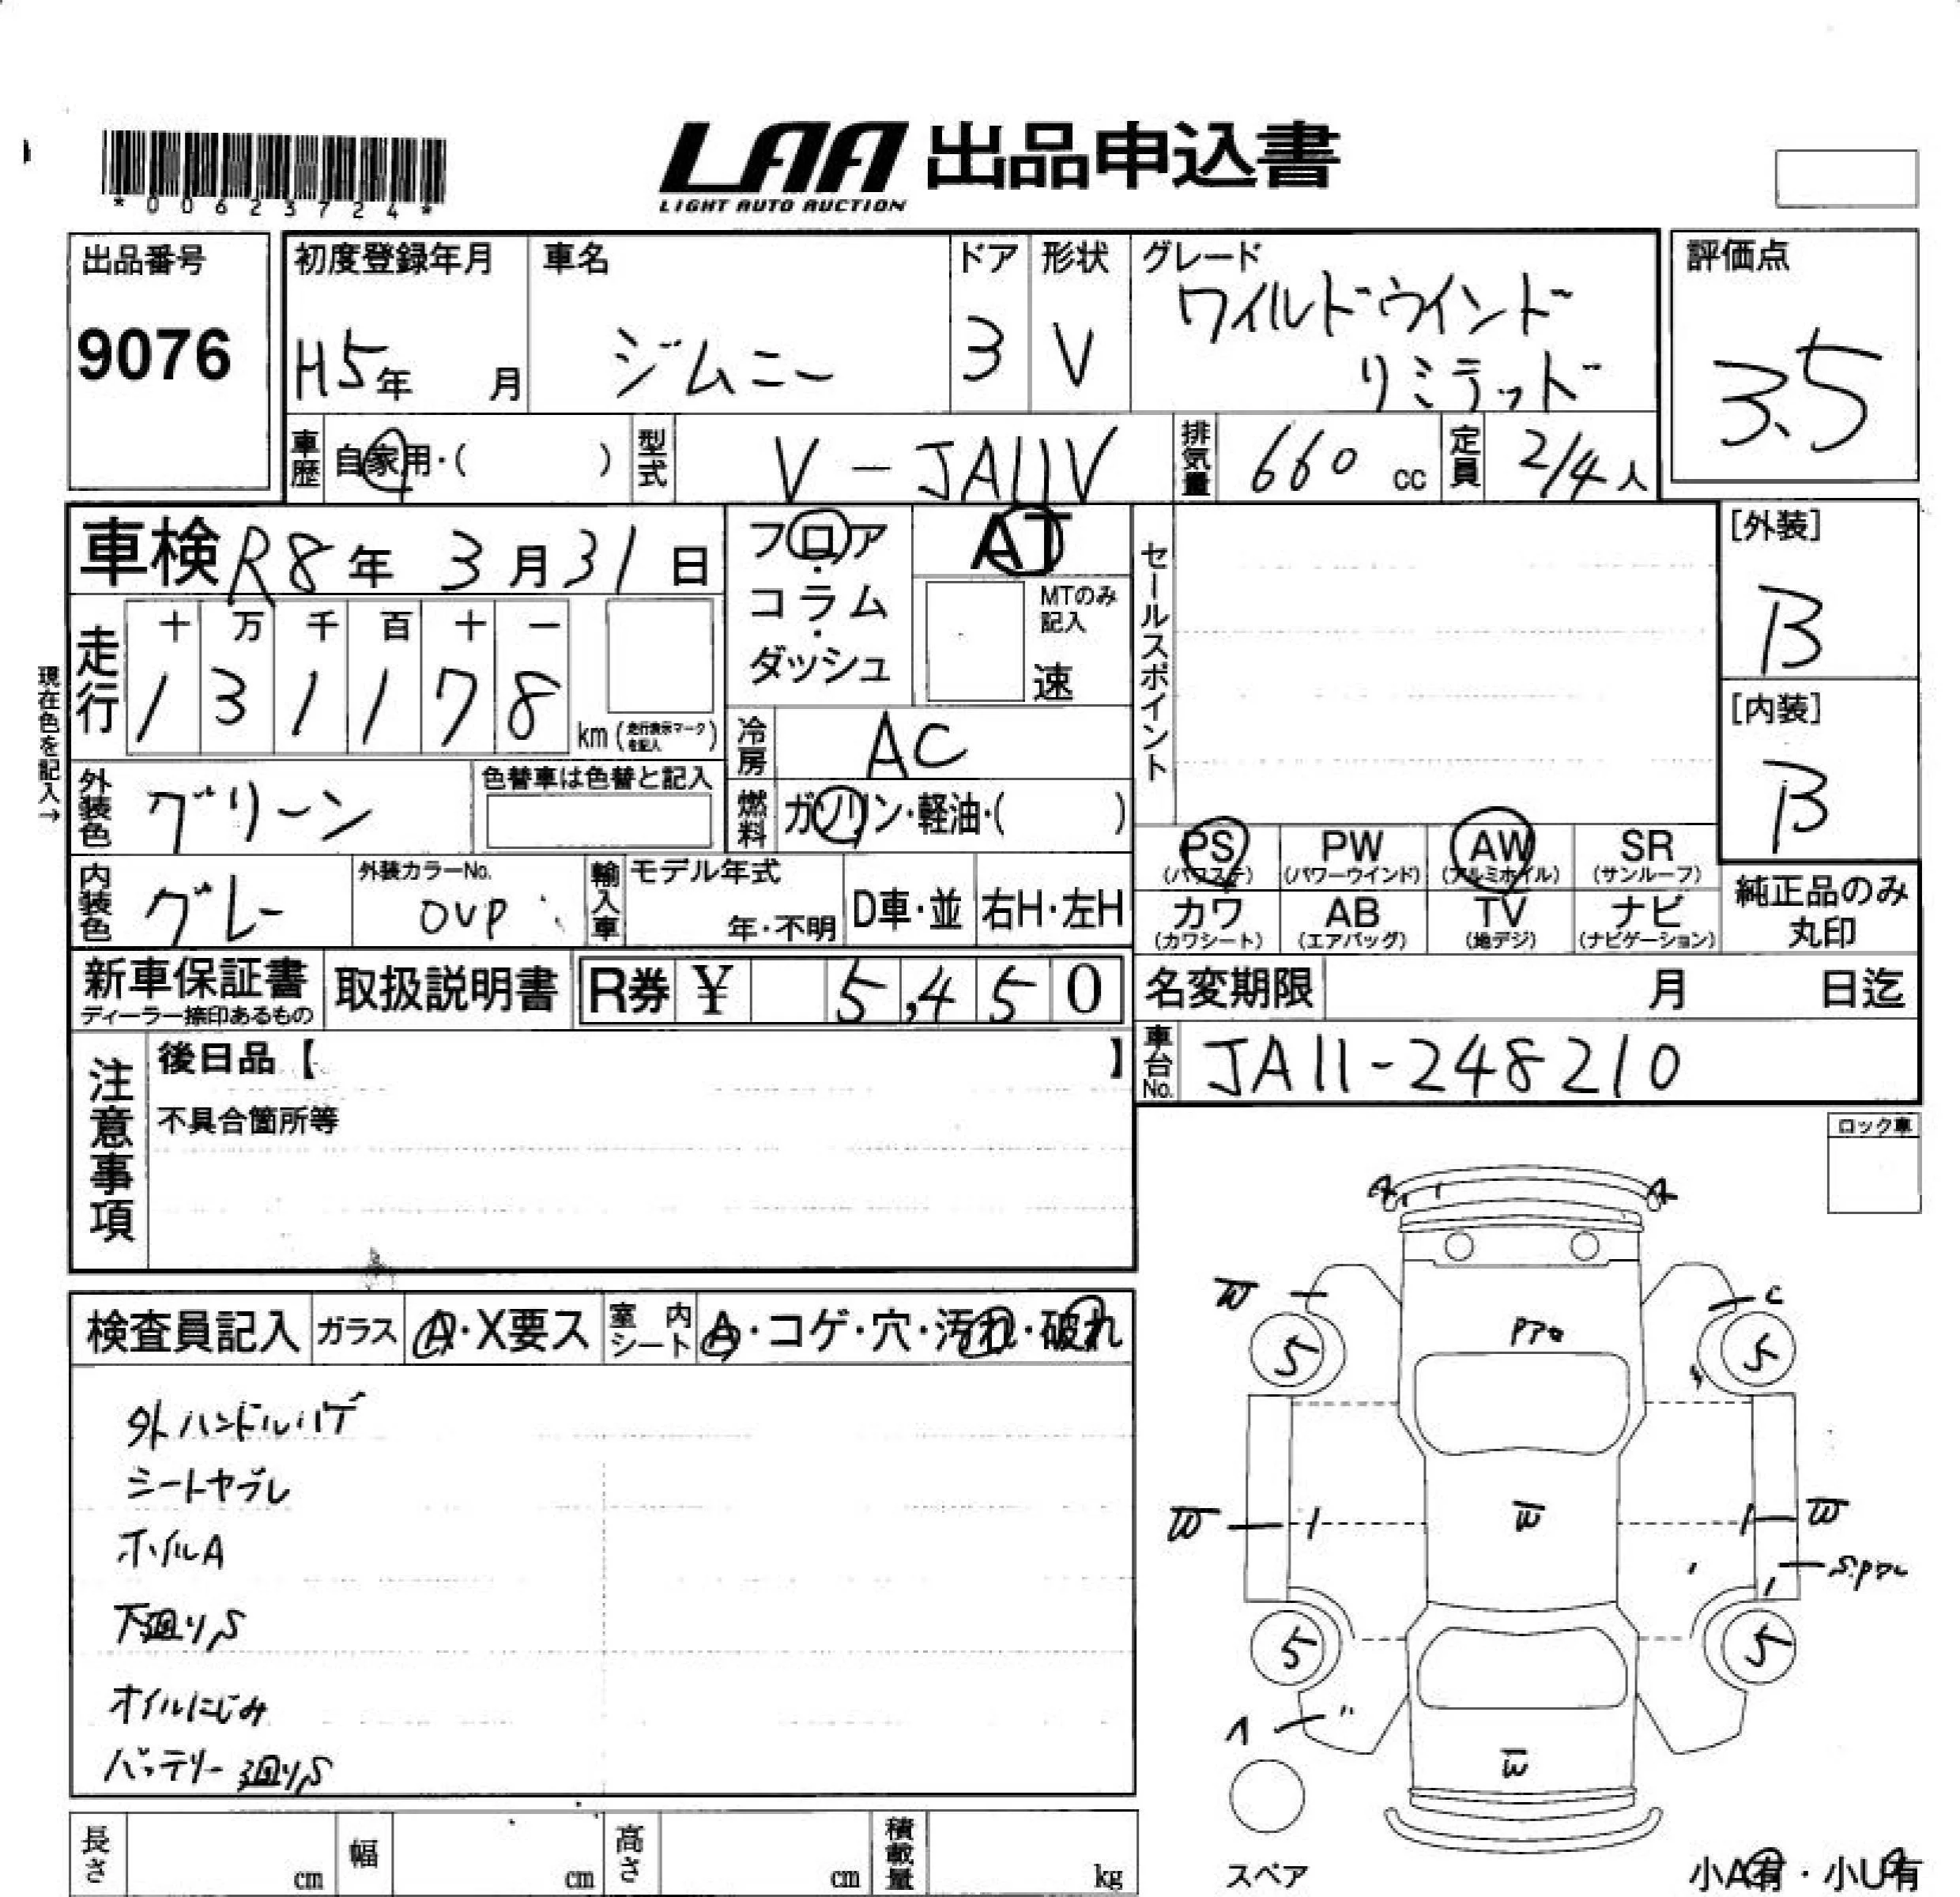 *00623724*
LAA 出品申込書
LIGHT AUTO AUCTION
出品番号
9076
初度登録年月
H5年 月
車名
ジムニー
ドア
3
形状
V
グレード
ワイルドウインド
リミテッド
評価点
3.5
車歴 自家用・( )
型式 V-JA11V
排気量 660 cc
定員 2/4人
車検 R8年 3月31日
フロア・コラム・ダッシュ
AT
MTのみ記入
速
セールスポイント
[外装]
B
[内装]
B
現在色を記入→
走行
十 万 千 百 十 一
1 3 1 1 7 8
km (走行表示マークを記入)
冷房 AC
外装色 グリーン
色替車は色替と記入
燃料 ガソリン・軽油・( )
PS (パワステ) PW (パワーウインド) AW (アルミホイル) SR (サンルーフ)
カワ (カワシート) AB (エアバッグ) TV (地デジ) ナビ (ナビゲーション)
純正品のみ
丸印
内装色 グレー
外装カラーNo.
0VP
輸入車
モデル年式
年・不明
D車・並
右H・左H
新車保証書
ディーラー捺印あるもの
取扱説明書
R券 ¥ 5,450
名変期限 月 日迄
車台No. JA11-248210
注意事項
後日品【 】
不具合箇所等
ロック車
検査員記入
ガラス A・X要ス
室内シート A・コゲ・穴・汚れ・破れ
外ハンドルハゲ
シートヤブレ
ホイルA
下廻りS
オイルにじみ
バッテリー廻りS
W
C
5
5
W
W
W
5
5
W
スペア
長さ cm
幅 cm
高さ cm
積載量 kg
小A有・小U有